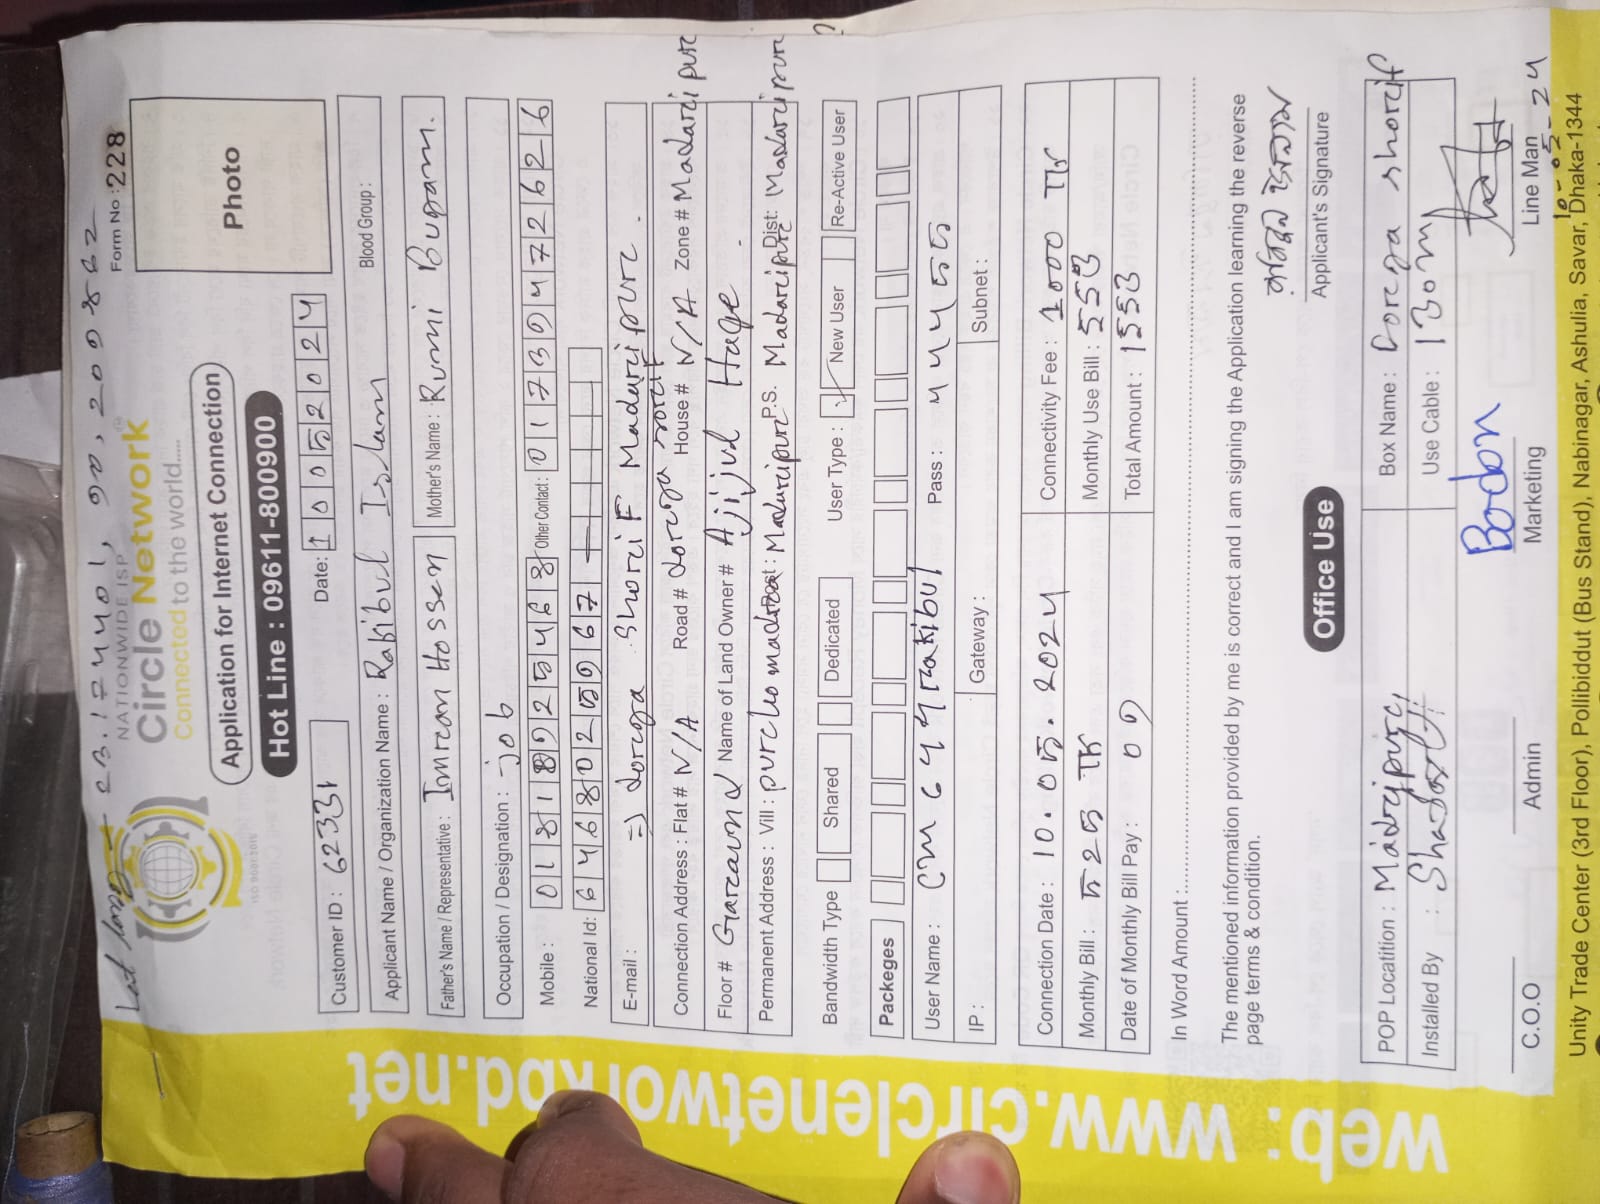 Lat long - 23.174401, 90.209862
NATIONWIDE ISP
Circle Network
Connected to the world.....
ISO 9001:2015
Form No : 228
Photo
Application for Internet Connection
Hot Line : 09611-800900
Customer ID : 62331
Date: 10052024
Applicant Name / Organization Name : Rakibul Islam
Blood Group :
Father's Name / Representative : Imran Hossen
Mother's Name : Rumi Bugam.
Occupation / Designation : job
Mobile : 01818925468
Other Contact : 01739472626
National Id: 6468025967
E-mail : => dorga shorif Madaripur.
Connection Address : Flat # N/A Road # dorga sorif House # N/A Zone # Madaripur
Floor # Graund Name of Land Owner # Ajijul Haqe.
Permanent Address : Vill : Post : Madaripur P.S. Madaripur Dist: Madaripur
Bandwidth Type Shared Dedicated User Type : ✓ New User Re-Active User
Packeges
User Name : Pass : 4455
IP : Gateway : Subnet :
Connection Date : 10.05.2024
Connectivity Fee : 1000 TK
Monthly Bill : 525 TK
Monthly Use Bill : 553
Date of Monthly Bill Pay : 09
Total Amount : 1553
In Word Amount :
The mentioned information provided by me is correct and I am signing the Application learning the reverse
page terms & condition.
Applicant's Signature
Office Use
POP Locatition : Madaripur
Box Name : Dorga shorif
Installed By :
Use Cable : 130m
Bodon
10-05-24
C.O.O
Admin
Marketing
Line Man
Unity Trade Center (3rd Floor), Pollibiddut (Bus Stand), Nabinagar, Ashulia, Savar, Dhaka-1344
web: www.circlenetworkbd.net